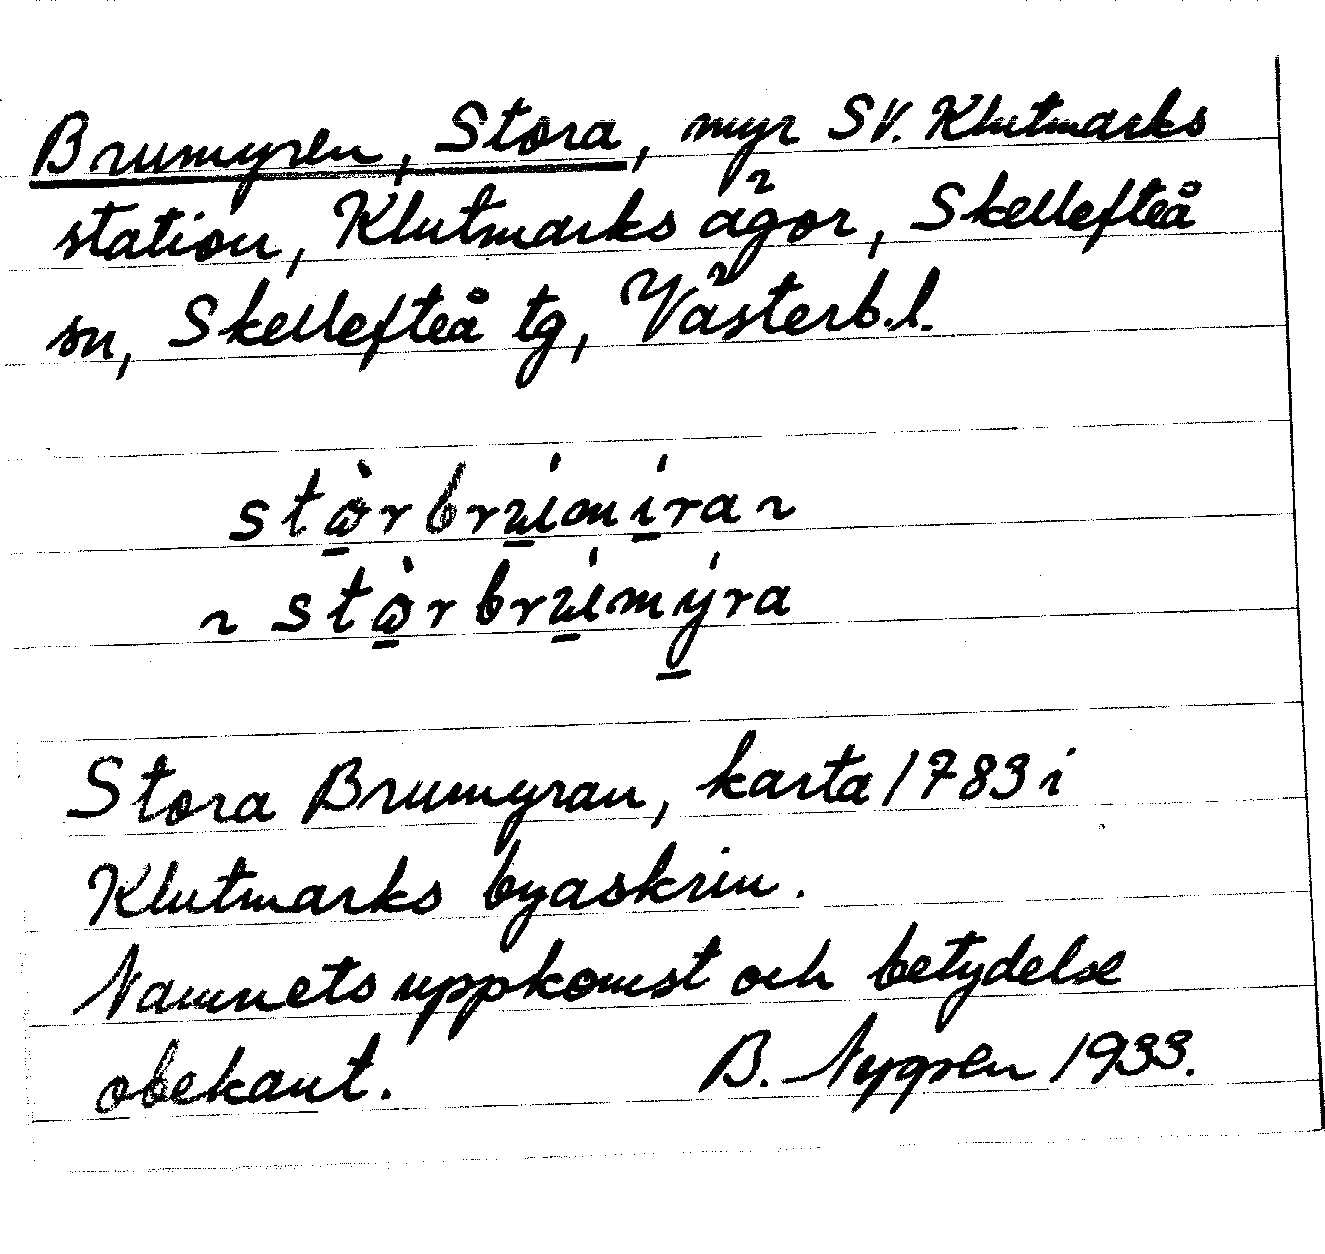 Brumyren, Stora, myr SV. Klutmarks
station, Klutmarks ägor, Skellefteå
sn, Skellefteå tg, Västerb.l.
Stora Brumyran, karta 1783 i
Klutmarks byaskrin.
Namnets uppkomst och betydelse
obekant. B. Nygren 1933.